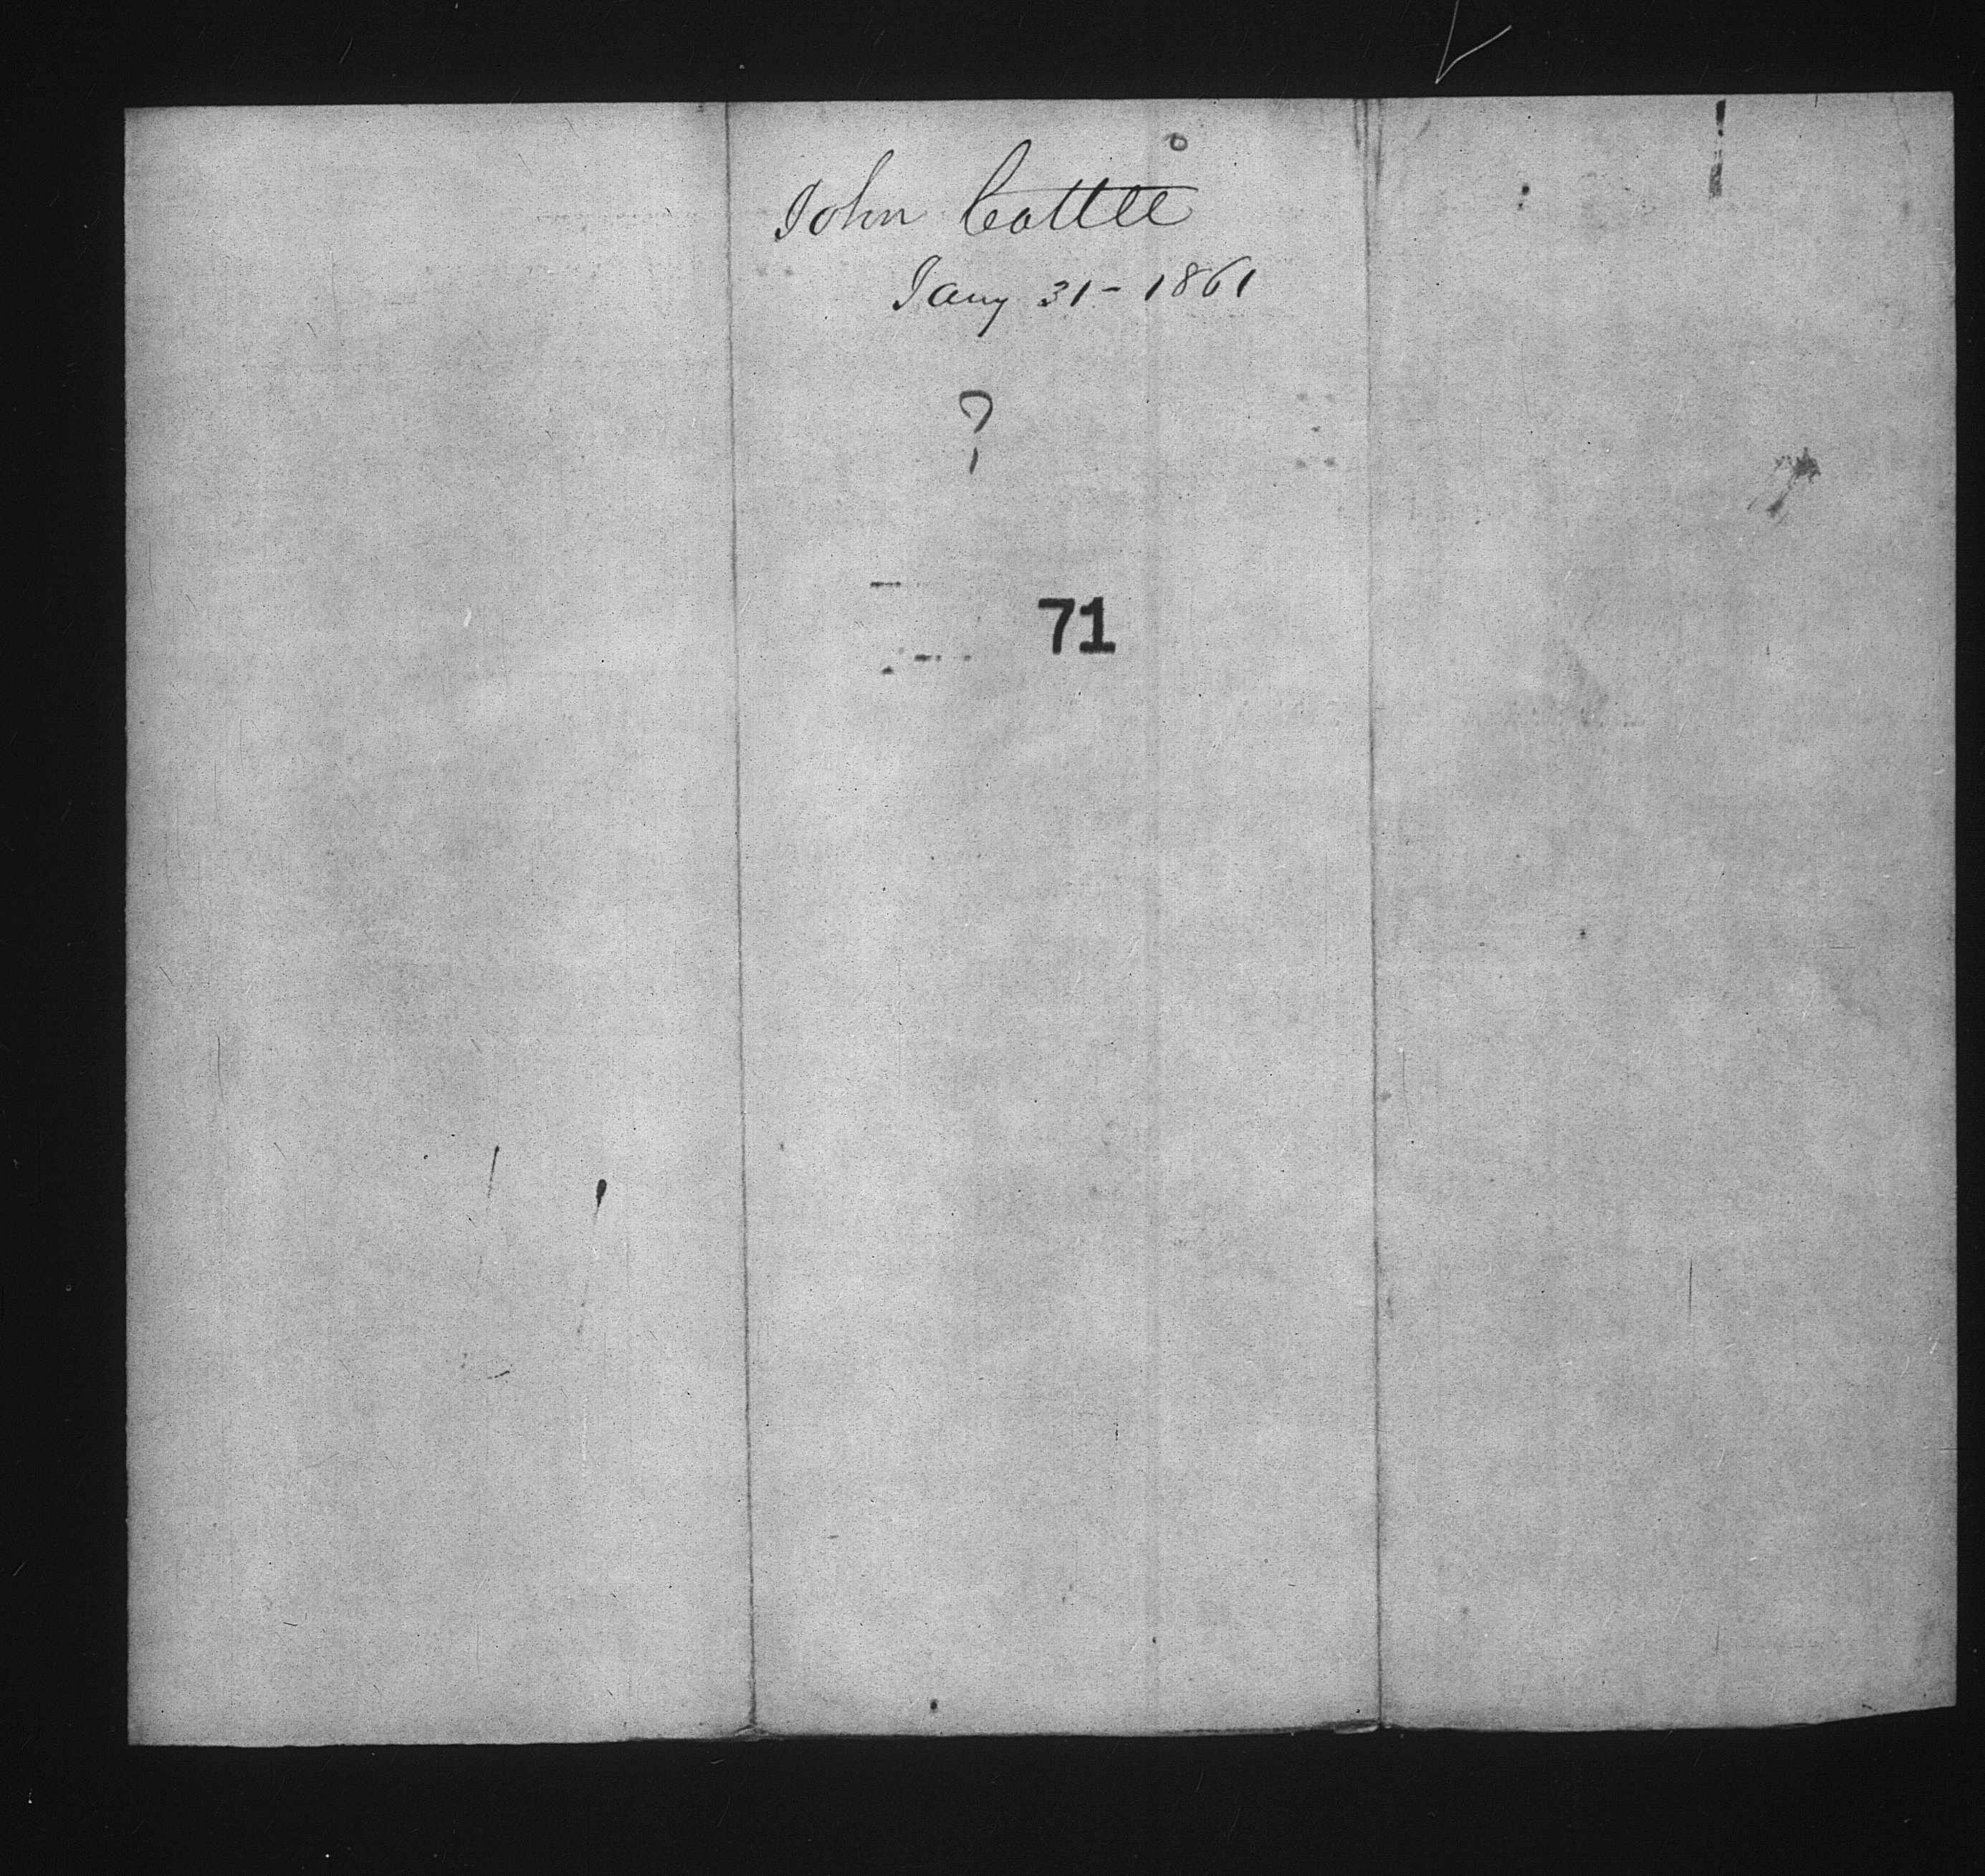 John Cottle
Jany 31 - 1861
?
71